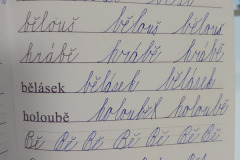 bělouš bělouš bělouš
hrábě hrábě hrábě
bělásek bělásek bělásek
holoubě holoubě holoubě
Bě Bě Bě Bě Bě Bě Bě